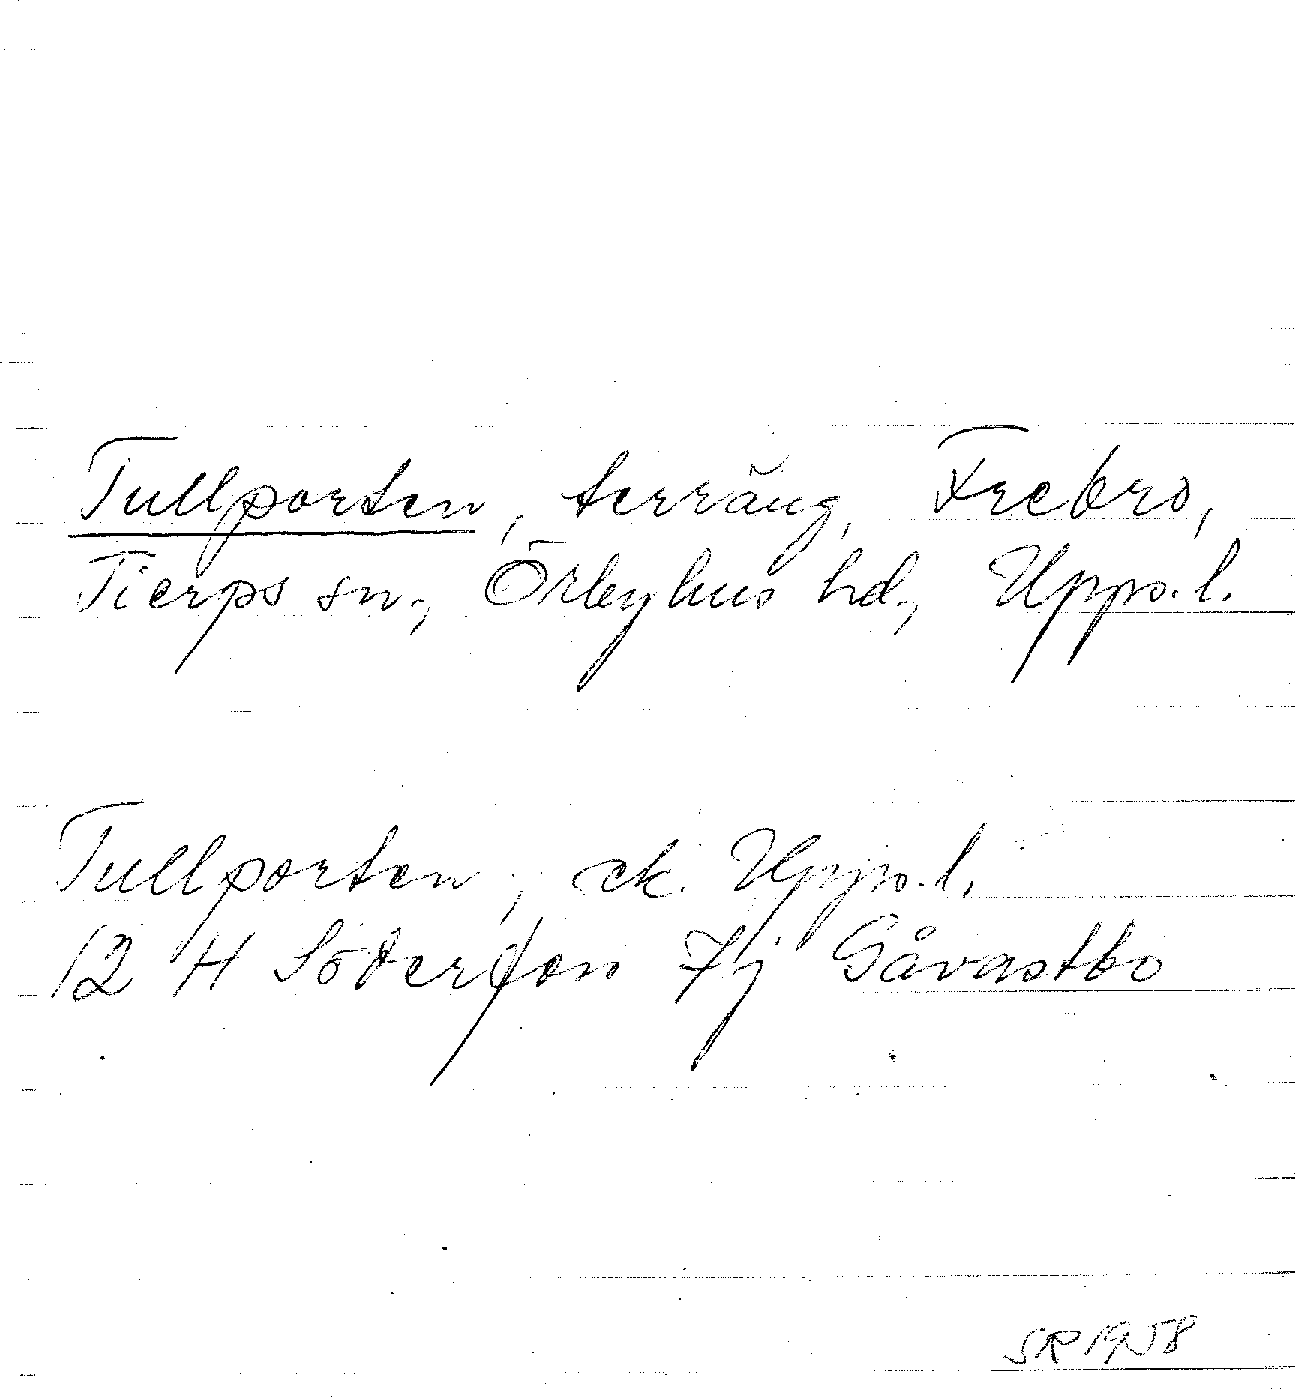 Tullporten, terräng, Frebro,
Tierps sn., Örbyhus hd., Upps. l.
Tullporten, ek. Upps. l.
12 H Söderfors 7j Gåvastbo
SR 1958